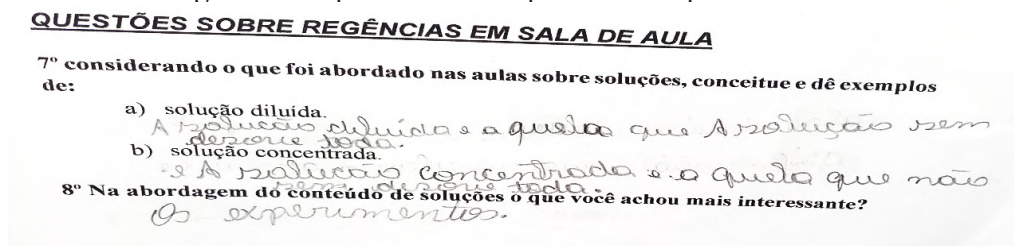 QUESTÕES SOBRE REGÊNCIAS EM SALA DE AULA
7º considerando o que foi abordado nas aulas sobre soluções, conceitue e dê exemplos
de:
a) solução diluída.
A solução diluida e a quela que A solução sem
toda.
b) solução concentrada.
e A solucão concentrada e a quela que não
sem toda.
8º Na abordagem do conteúdo de soluções o que você achou mais interessante?
Os experimentos.